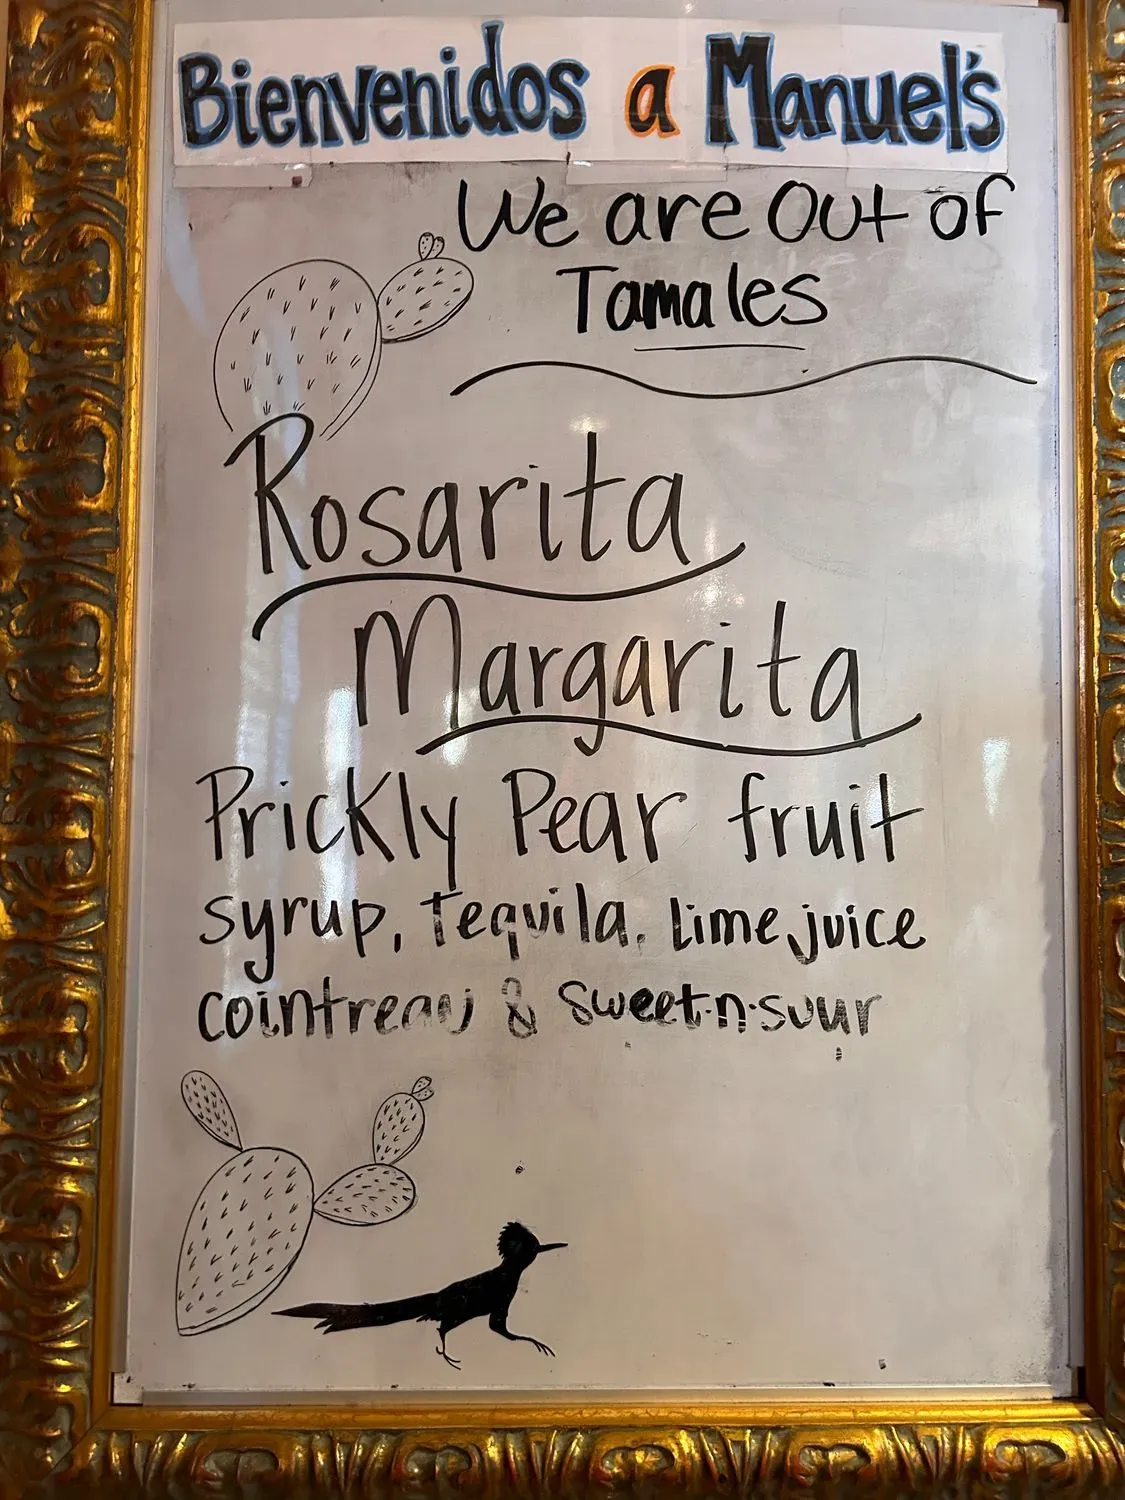 Bienvenidos a Manuel's
We are Out of
Tamales
Rosarita
Margarita
Prickly Pear fruit
syrup, Tequila, Lime juice
cointreau & sweet-n-suur